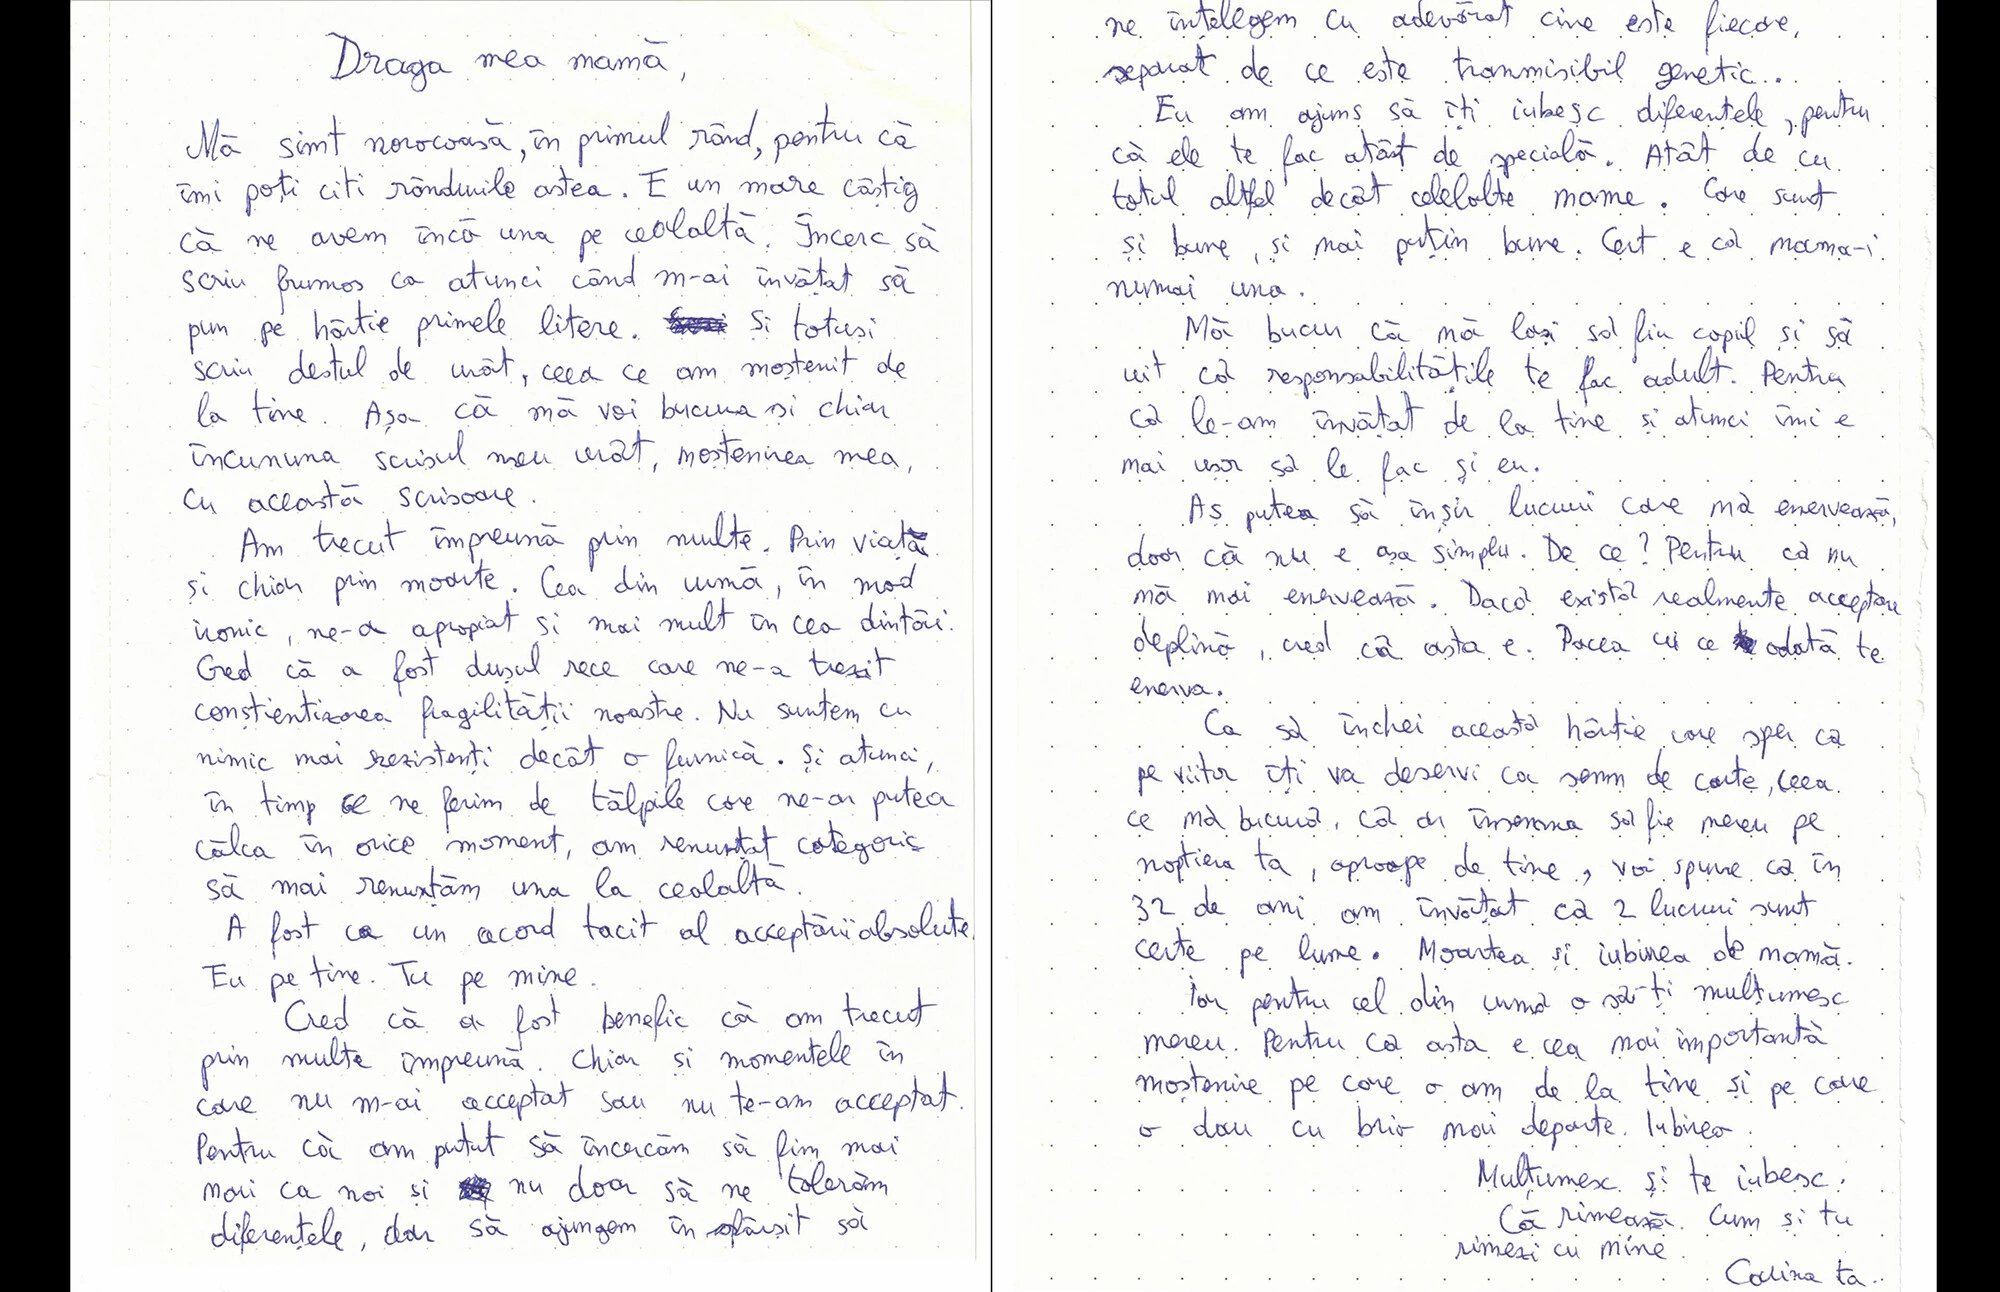 Draga mea mamă,
Mă simt norocoasă, în primul rând, pentru că
îmi poți citi rândurile astea. E un mare câștig
că ne avem încă una pe cealaltă. Încerc să
scriu frumos ca atunci când m-ai învățat să
pun pe hârtie primele litere. Și totuși
scriu destul de urât, ceea ce am moștenit de
la tine. Așa că mă voi bucura și chiar
încununa scrisul meu urât, moștenirea mea,
cu această scrisoare.
Am trecut împreună prin multe. Prin viață
și chiar prin moarte. Cea din urmă, în mod
ironic, ne-a apropiat și mai mult în cea dintâi.
Cred că a fost dușul rece care ne-a trezit
conștientizarea fragilității noastre. Nu suntem cu
nimic mai rezistenți decât o furnică. Și atunci,
în timp ce ne ferim de tălpile care ne-ar putea
călca în orice moment, am renunțat categoric
să mai renunțăm una la cealaltă.
A fost ca un acord tacit al acceptării absolute.
Eu pe tine. Tu pe mine.
Cred că a fost benefic că am trecut
prin multe împreună. Chiar și momentele în
care nu m-ai acceptat sau nu te-am acceptat.
Pentru că am putut să încercăm să fim mai
mari ca noi și nu doar să ne tolerăm
diferențele, dar să ajungem în sfârșit să
ne înțelegem cu adevărat cine este fiecare,
separat de ce este transmisibil genetic..
Eu am ajuns să îți iubesc diferențele, pentru
că ele te fac atât de specială. Atât de cu
totul altfel decât celelalte mame. Care sunt
și bune, și mai puțin bune. Cert e că mama-i
numai una.
Mă bucur că mă lași să fiu copil și să
uit că responsabilitățile te fac adult. Pentru
că le-am învățat de la tine și atunci îmi e
mai ușor să le fac și eu.
Aș putea să înșir lucruri care mă enervează,
doar că nu e așa simplu. De ce? Pentru că nu
mă mai enervează. Dacă există realmente acceptare
deplină, cred că asta e. Pacea cu ce odată te
enerva.
Ca să închei această hârtie care sper că
pe viitor îți va deservi ca semn de carte, ceea
ce mă bucură, că ar însemna să fie mereu pe
noptiera ta, aproape de tine, voi spune că în
32 de ani am învățat că 2 lucruri sunt
certe pe lume. Moartea și iubirea de mamă.
Iar pentru cel din urmă o să-ți mulțumesc
mereu. Pentru că asta e cea mai importantă
moștenire pe care o am de la tine și pe care
o dau cu brio mai departe. Iubirea.
Mulțumesc și te iubesc.
Că rimează. Cum și tu
rimezi cu mine.
ta..